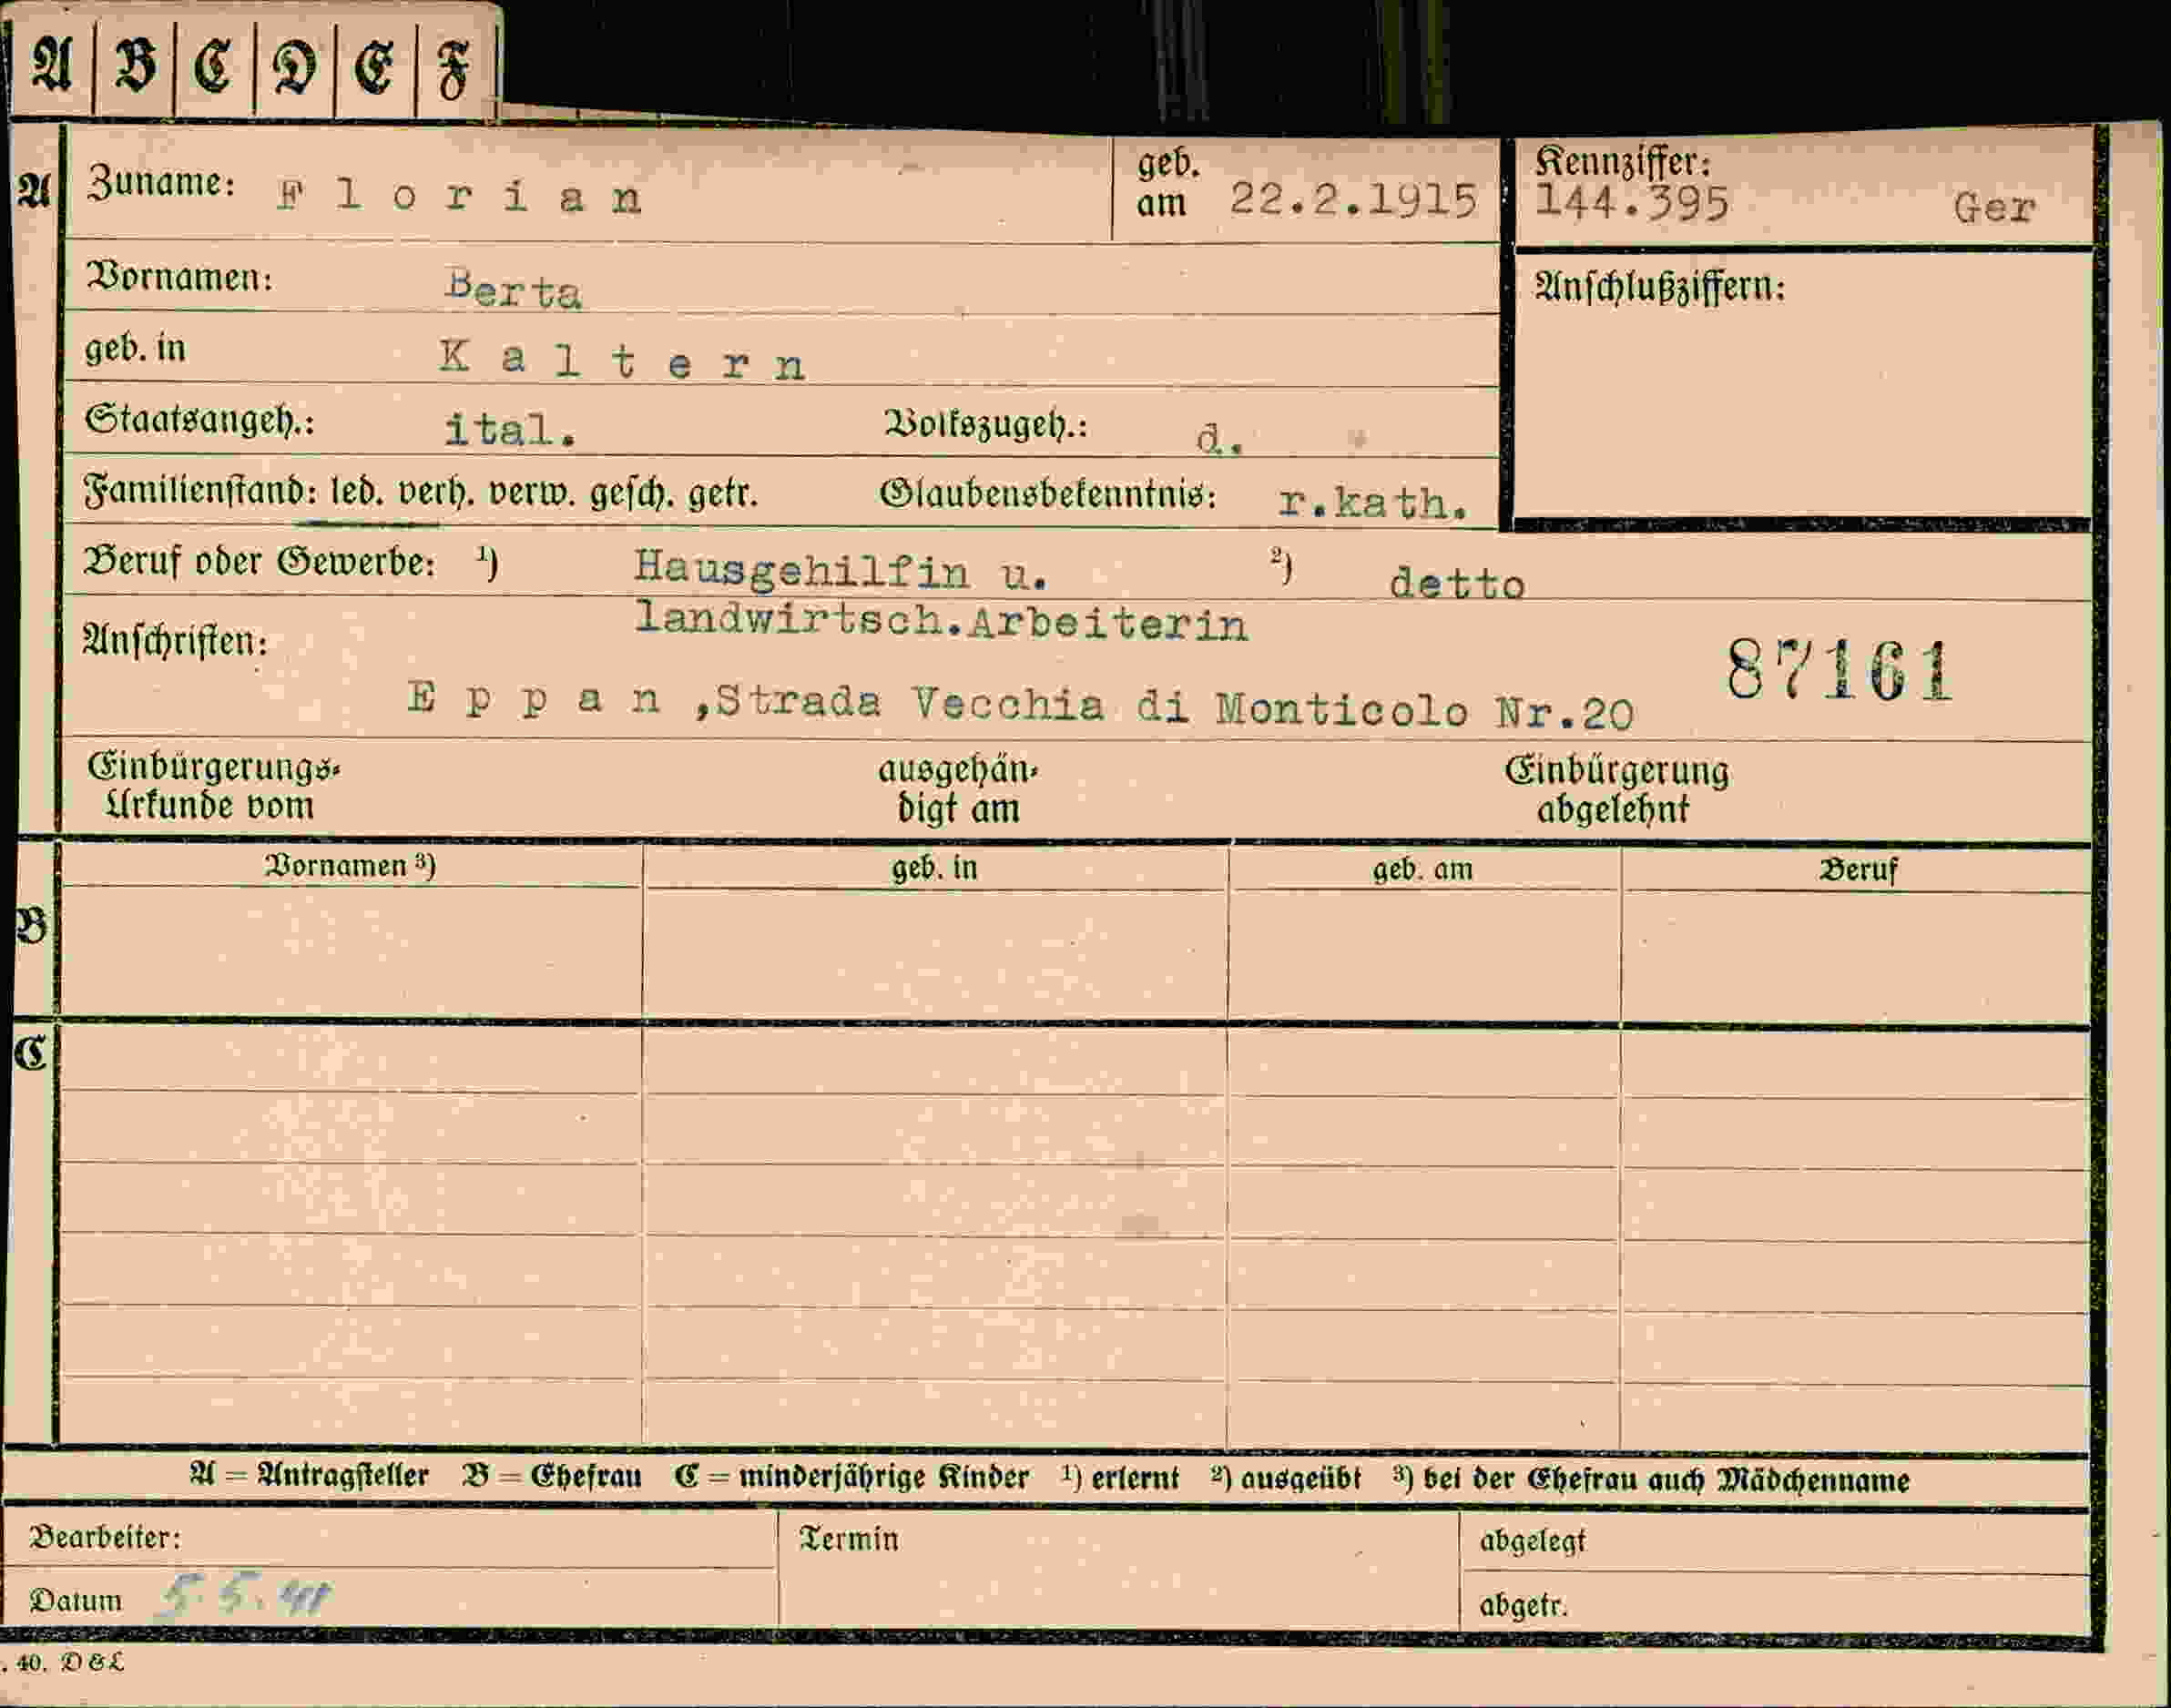 A B C D E F
A Zuname: Florian geb. am 22.2.1915 Kennziffer: 144.395 Ger
Vornamen: Berta Anschlußziffern:
geb. in Kaltern
Staatsangeh.: ital. Volkszugeh.: d.
Familienstand: led. verh. verw. gesch. getr. Glaubensbekenntnis: r.kath.
Beruf oder Gewerbe: ¹) Hausgehilfin u. ²) detto
landwirtsch.Arbeiterin
Anschriften: 87161
Eppan ,Strada Vecchia di Monticolo Nr.20
Einbürgerungs- ausgehän- Einbürgerung
Urkunde vom digt am abgelehnt
Vornamen ³) geb. in geb. am Beruf
B
C
A = Antragsteller B = Ehefrau C = minderjährige Kinder ¹) erlernt ²) ausgeübt ³) bei der Ehefrau auch Mädchenname
Bearbeiter: Termin abgelegt
Datum 5.5.41 abgetr.
. 40. D & L